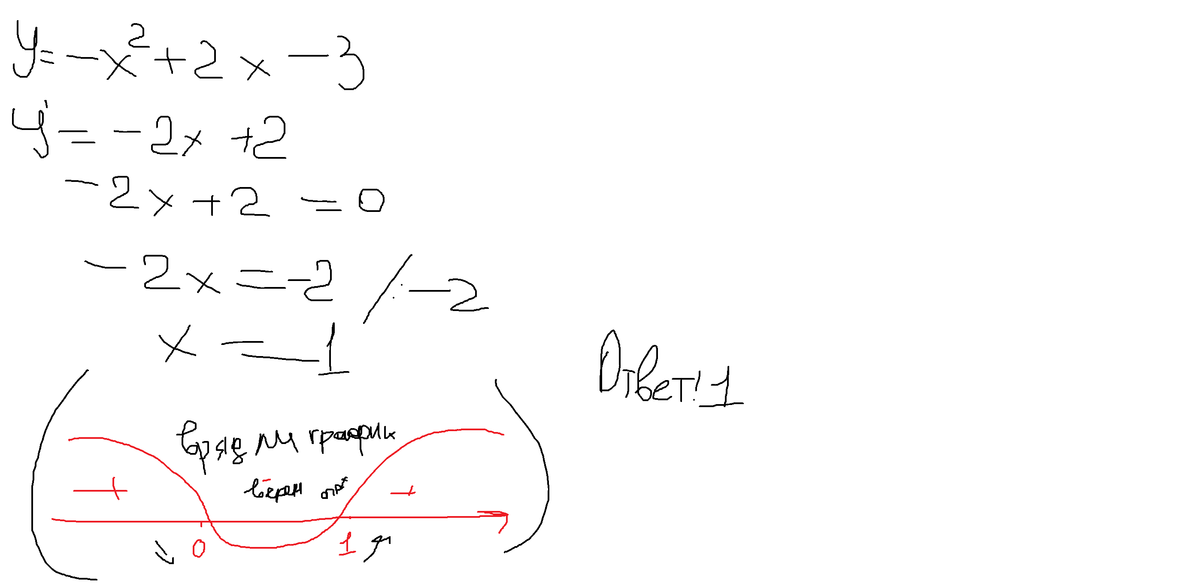 y=-x²+2x-3
y'=-2x+2
-2x+2=0
-2x=-2 /:-2
x=1
Ответ! 1
вряд ли график
верен
+ - +
0 1